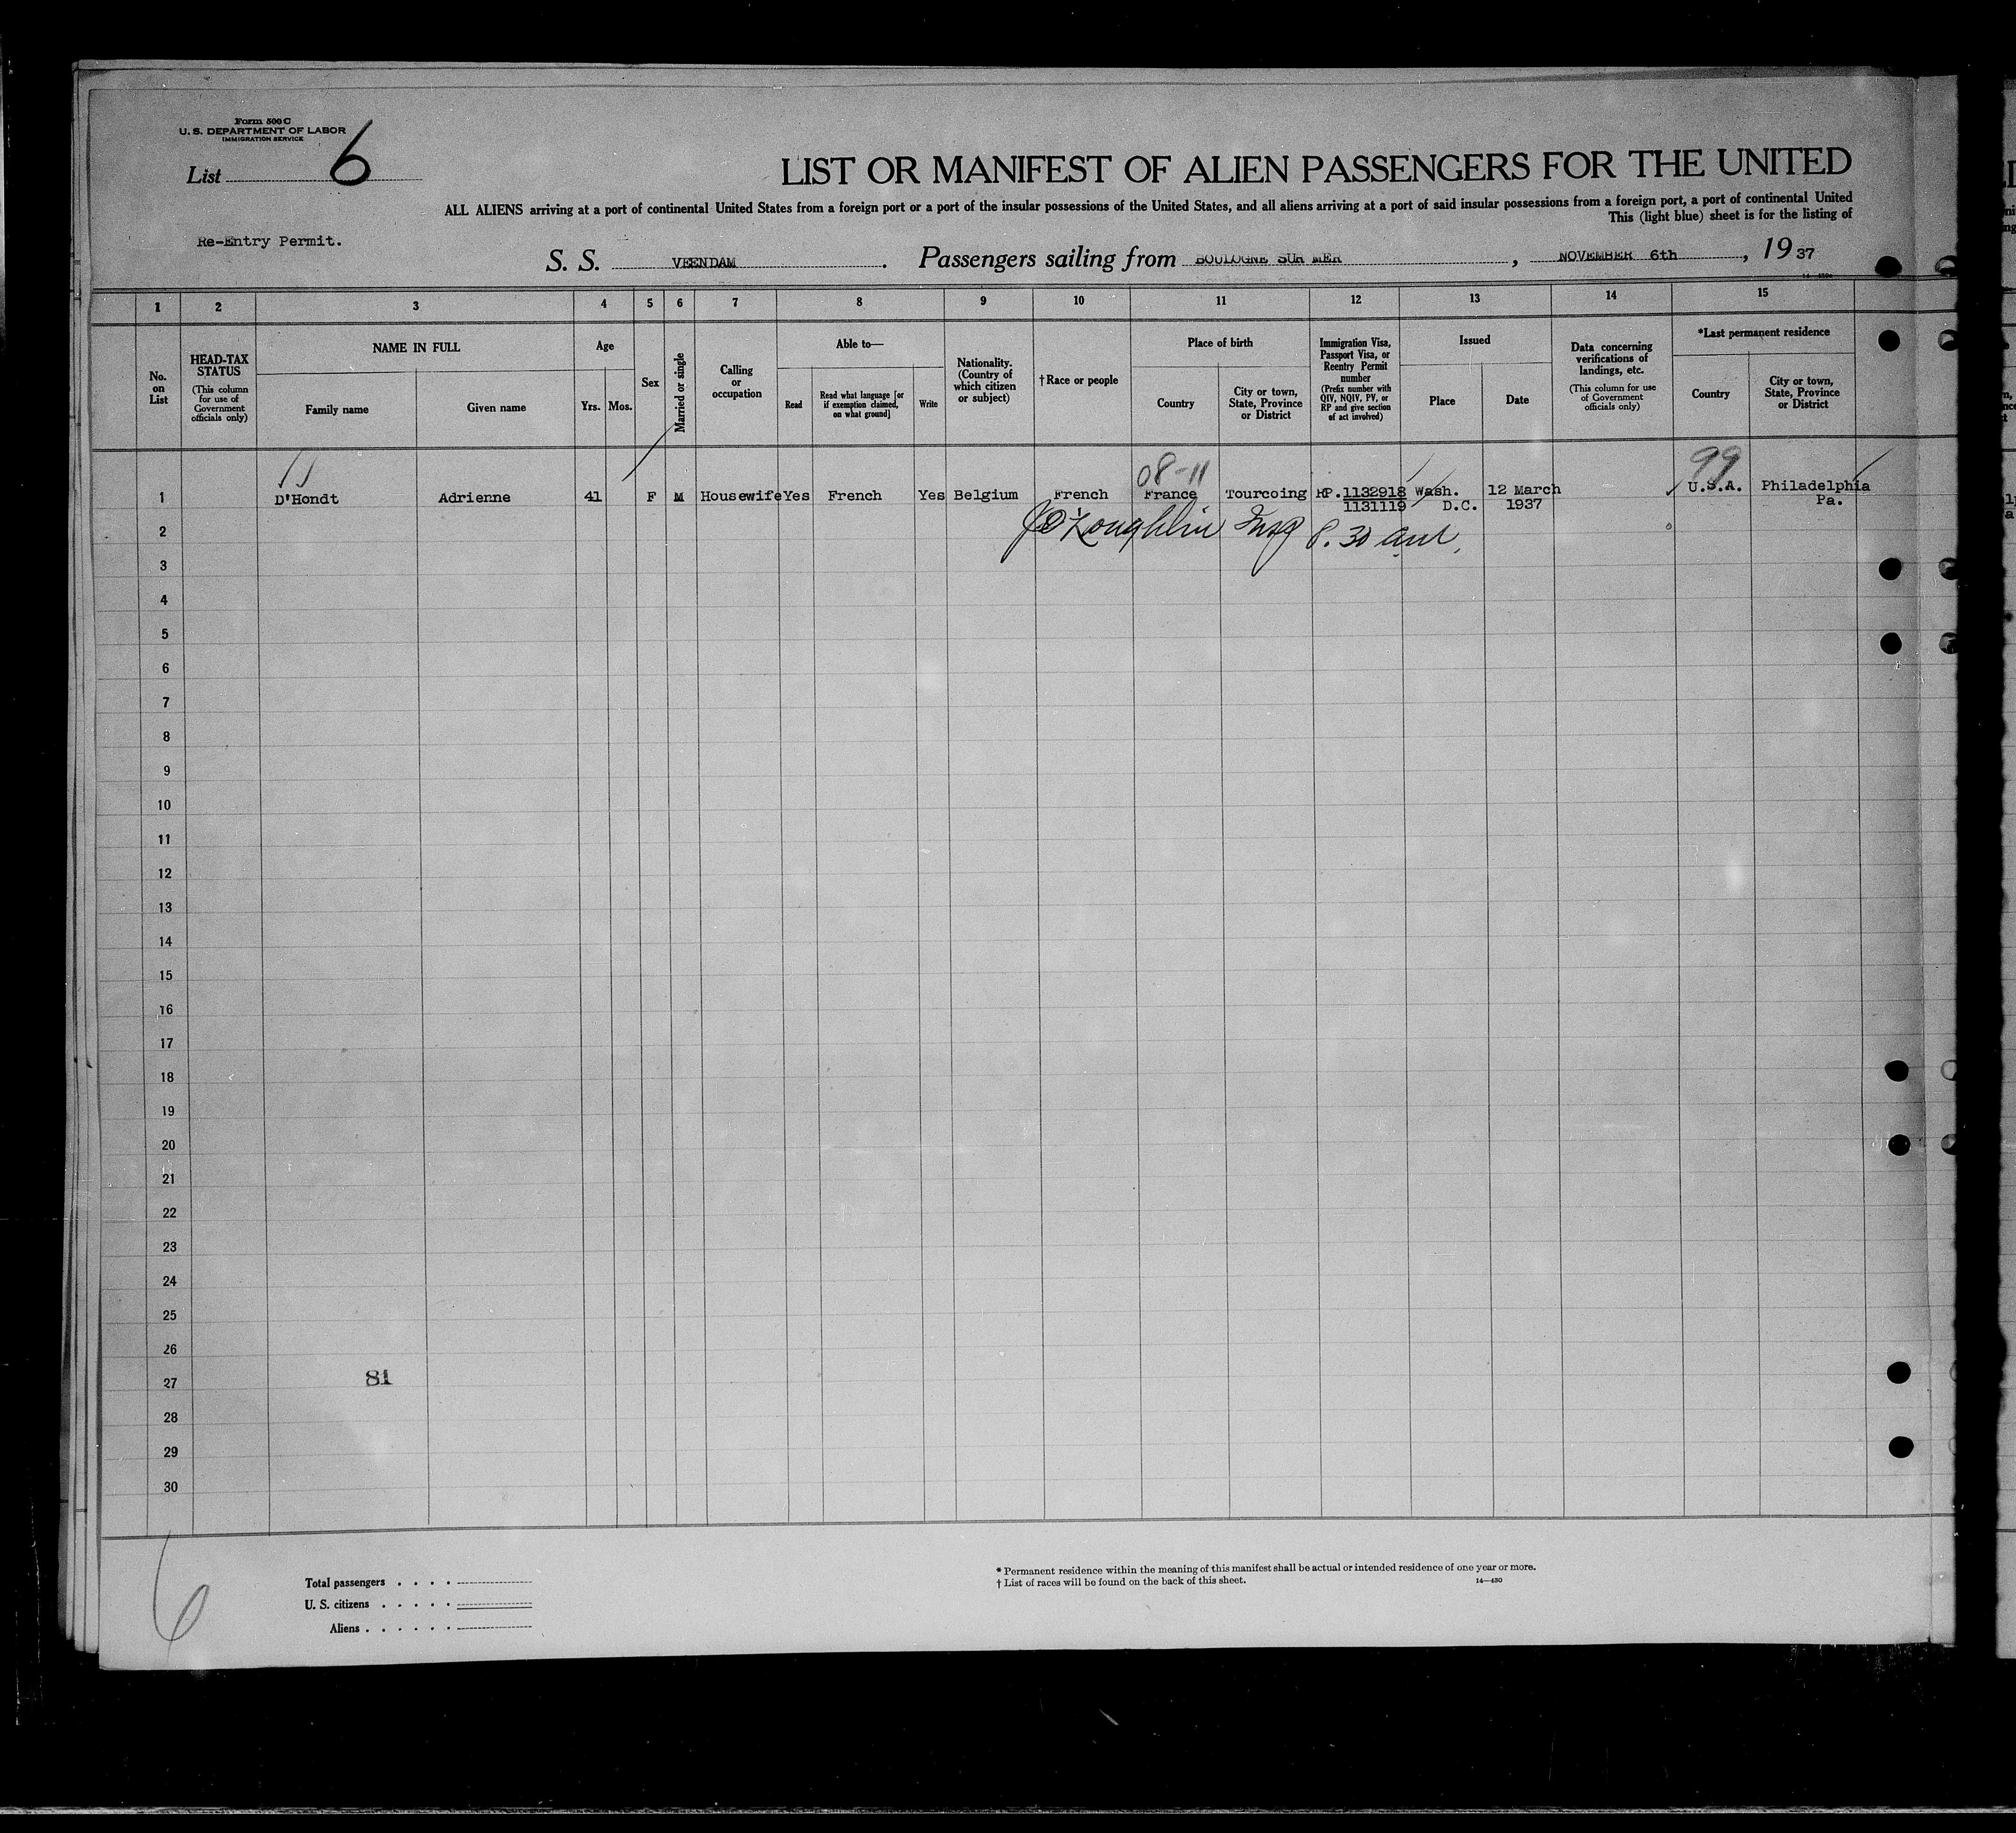 Form 500 C
U. S. DEPARTMENT OF LABOR
IMMIGRATION SERVICE
List 6
LIST OR MANIFEST OF ALIEN PASSENGERS FOR THE UNITED
ALL ALIENS arriving at a port of continental United States from a foreign port or a port of the insular possessions of the United States, and all aliens arriving at a port of said insular possessions from a foreign port, a port of continental United
This (light blue) sheet is for the listing of
Re-Entry Permit.
S. S. VEENDAM. Passengers sailing from BOULOGNE SUR MER, NOVEMBER 6th, 1937
1 2 3 4 5 6 7 8 9 10 11 12 13 14 15
No. on List
HEAD-TAX STATUS
(This column for use of Government officials only)
NAME IN FULL
Family name
Given name
Age
Yrs. Mos.
Sex
Married or single
Calling or occupation
Able to—
Read
Read what language [or if exemption claimed, on what ground]
Write
Nationality. (Country of which citizen or subject)
†Race or people
Place of birth
Country
City or town, State, Province or District
Immigration Visa, Passport Visa, or Reentry Permit number
(Prefix number with QIV, NQIV, PV, or RP and give section of act involved)
Issued
Place
Date
Data concerning verifications of landings, etc.
(This column for use of Government officials only)
*Last permanent residence
Country
City or town, State, Province or District
08-11 99
1 D'Hondt Adrienne 41 F M Housewife Yes French Yes Belgium French France Tourcoing RP.1132918 Wash. 12 March U.S.A. Philadelphia
1131119 D.C. 1937 Pa.
2 O'Loughlin Insp
3
4
5
6
7
8
9
10
11
12
13
14
15
16
17
18
19
20
21
22
23
24
25
26
27 81
28
29
30
6
Total passengers . . . .
U. S. citizens . . . . .
Aliens . . . . . .
* Permanent residence within the meaning of this manifest shall be actual or intended residence of one year or more.
† List of races will be found on the back of this sheet. 14—430